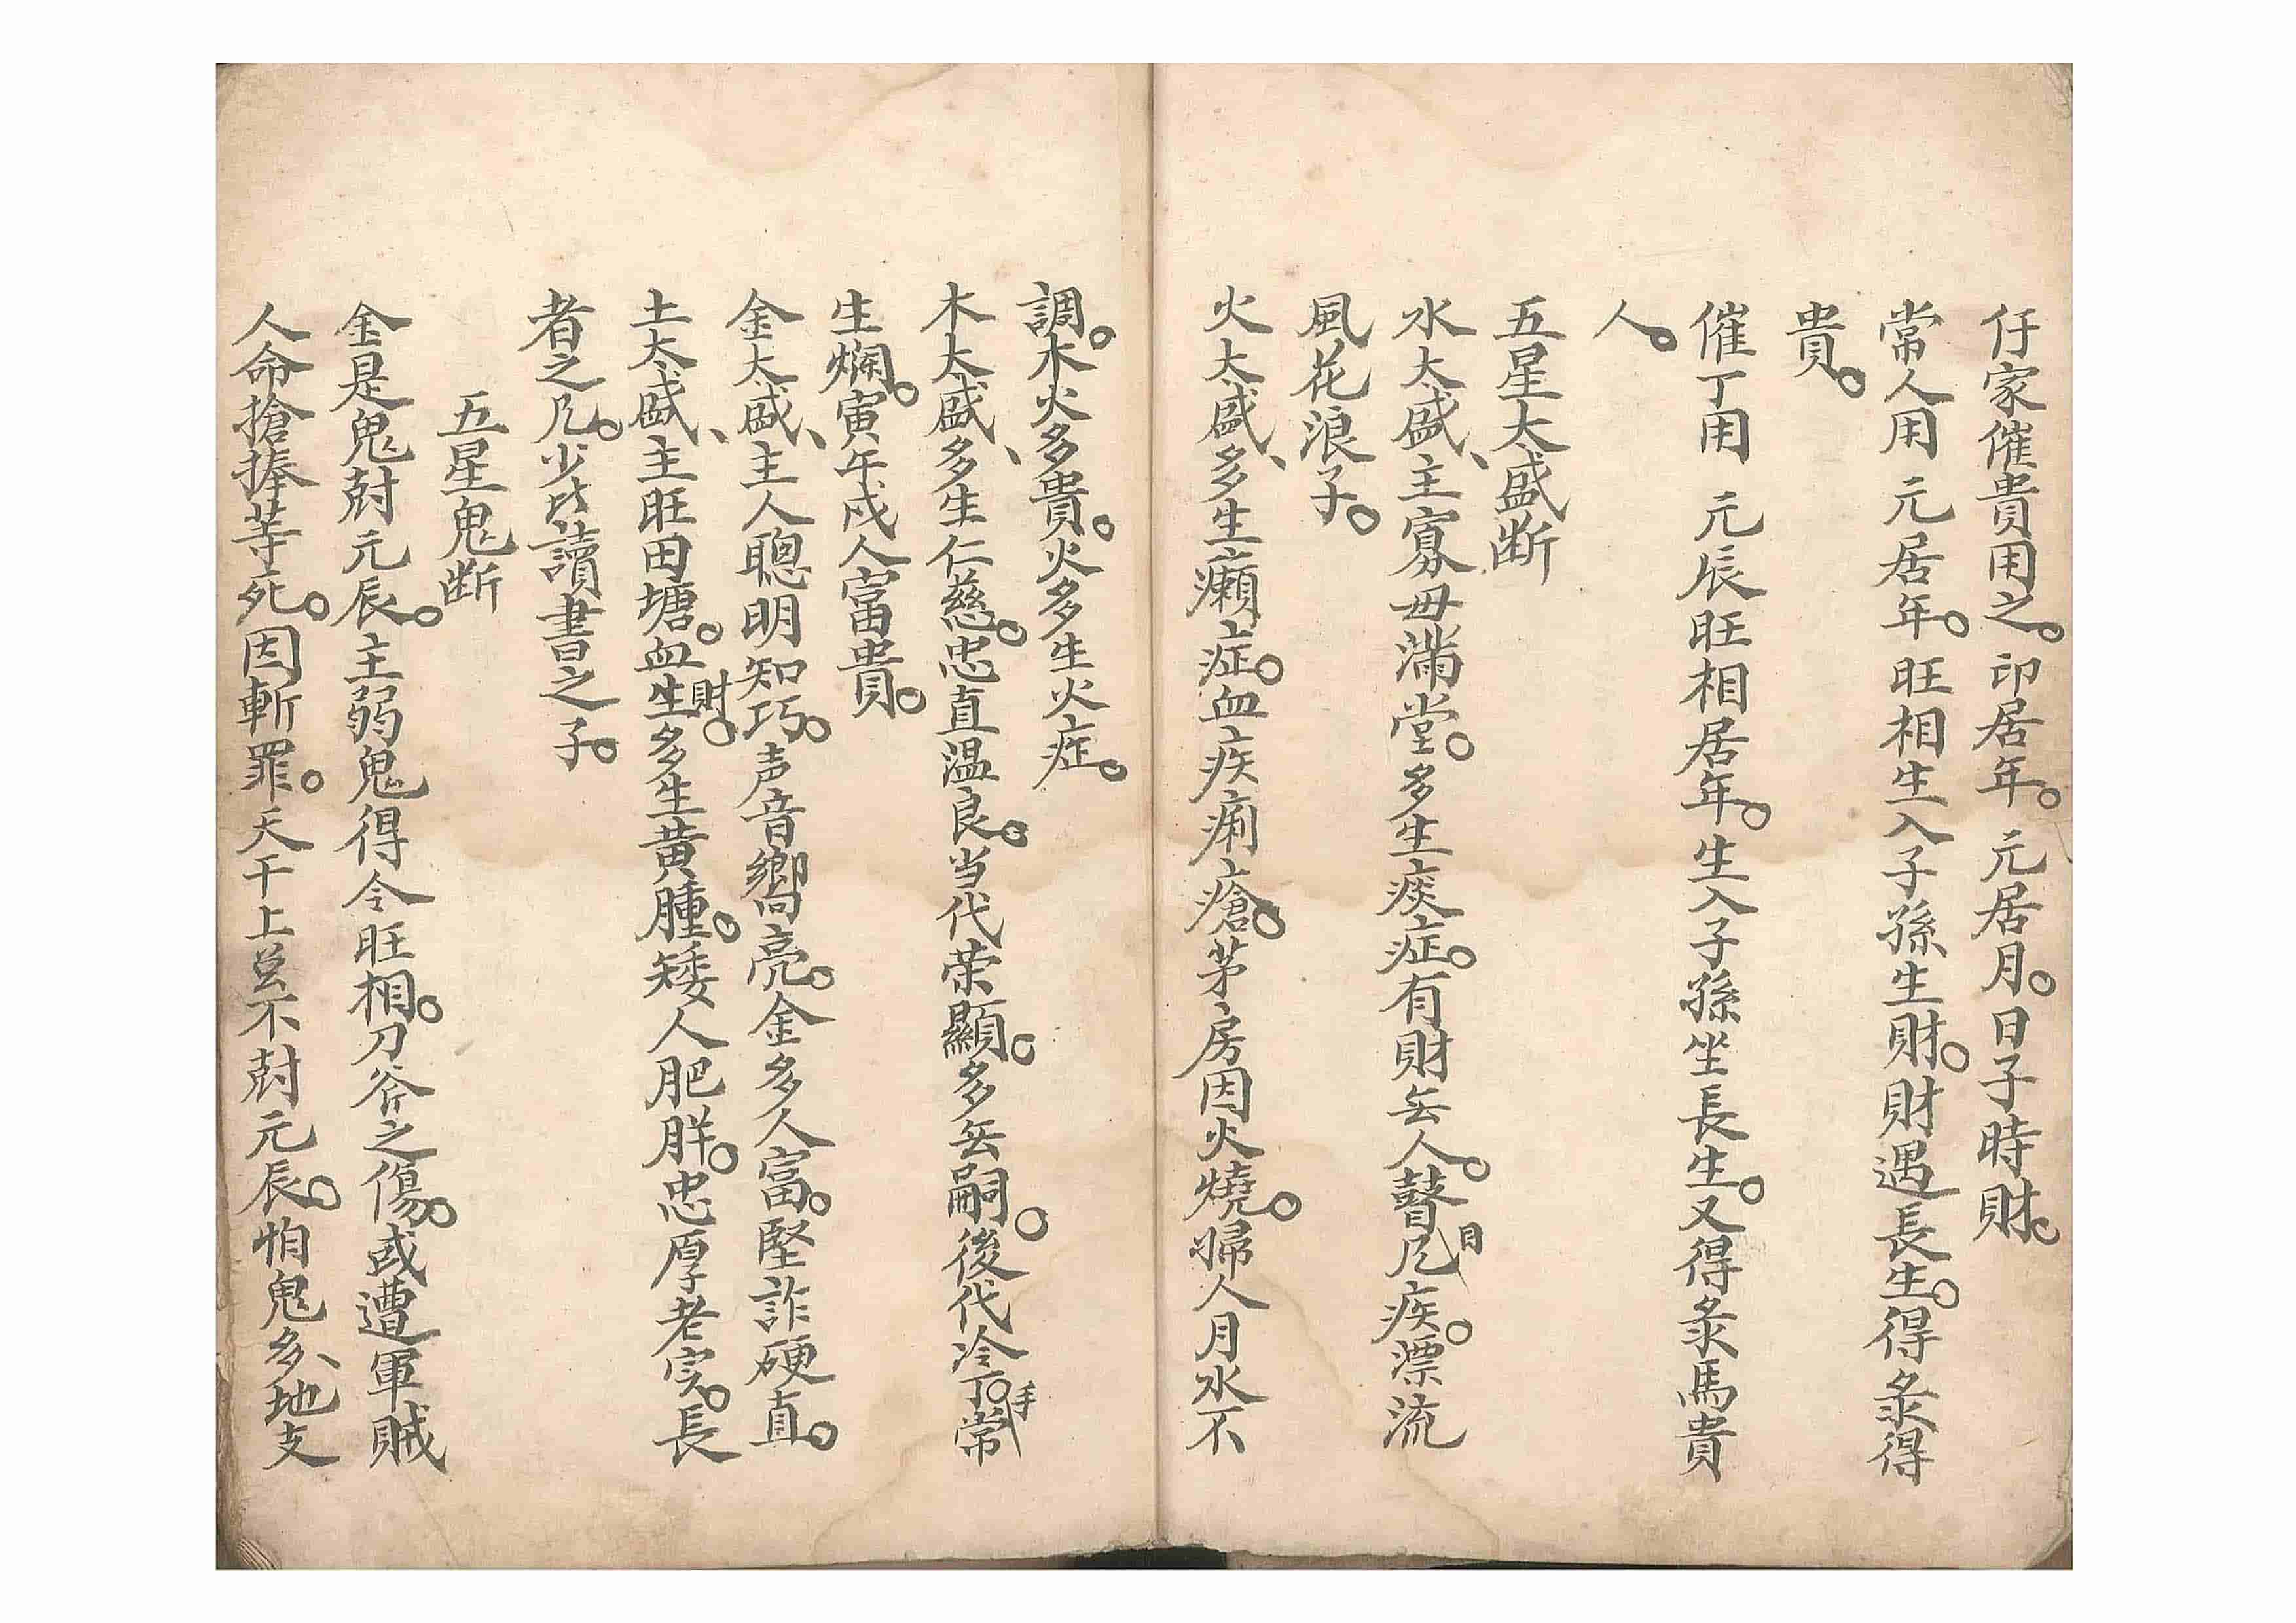 仔家催貴用之。印居年。元居月。日子時財。
常人用 元居年。旺相生入子孫生財。財遇長生。得彔得
貴。
催丁用 元辰旺相居年。生入子孫坐長生。又得彔馬貴
人。
五星太盛断
水太盛、主寡毋滿堂。多生痰症。有財無人。瞽目凢疾。漂流
風花浪子。
火太盛、多生癩症。血疾痢瘡。茅房因火燒。婦人月水不
調。木火多貴。火多生火症。
木太盛、多生仁慈。忠直温良。当代荣顯。多無嗣。後代冷丁。手常
生爛。寅午戌人富貴。
金太盛、主人聰明知巧。声音嚮亮。金多人富。堅詐硬直。
土太盛、主旺田塘。血財。生多生黄腫。矮人肥胖。忠厚老实。長
者之凢。少比讀書之子。
五星鬼断
金是鬼尅元辰。主弱鬼得令旺相。刀斧之傷。或遭軍賊
人命搶捧等死。因斬罪。天干上並不尅元辰。怕鬼多、地支